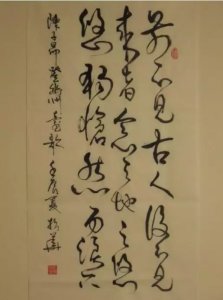 前不見古人後不見
來者念天地之悠
悠獨愴然而涕下
陳子昂登幽州臺歌壬辰夏